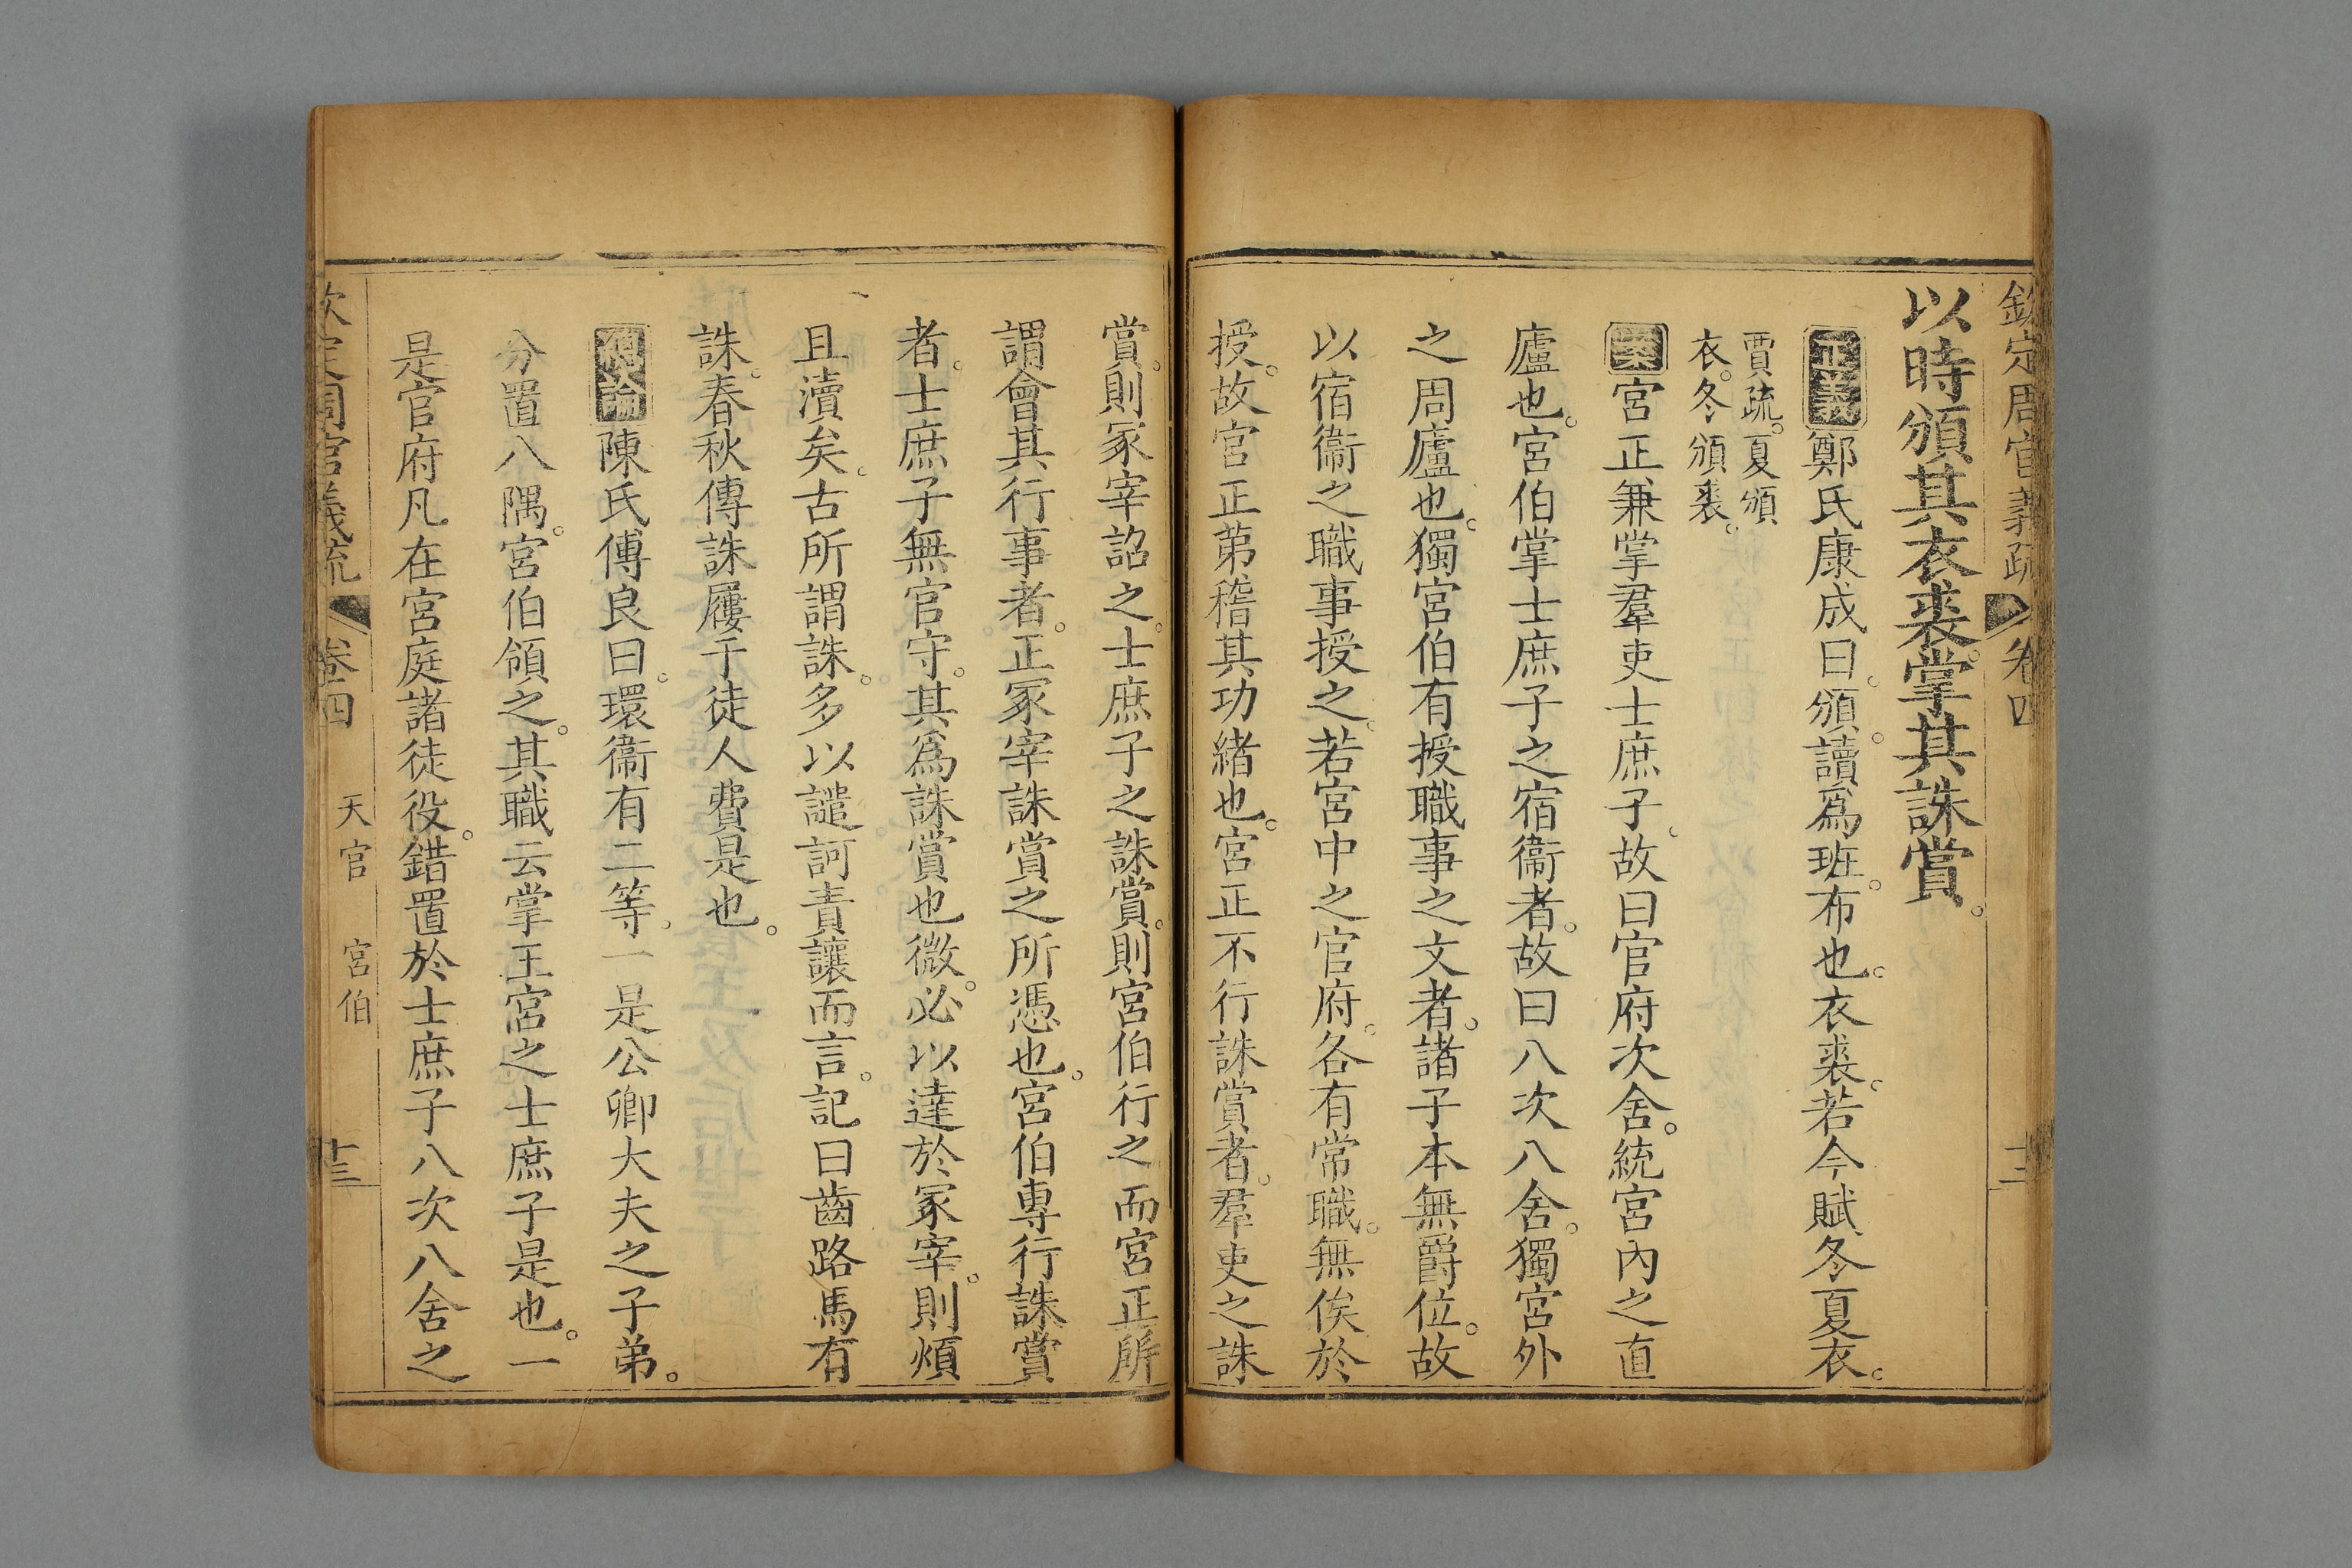 欽定周官義疏 卷四 十二
以時頒其衣裘。掌其誅賞。
正義鄭氏康成曰。頒。讀爲班。布也。衣裘。若今賦冬夏衣。
賈疏。夏頒
衣。冬頒裘。
案宮正兼掌羣吏士庶子。故曰官府次舍。統宮內之直
廬也。宮伯掌士庶子之宿衞者。故曰八次八舍。獨宮外
之周廬也。獨宮伯有授職事之文者。諸子本無爵位。故
以宿衞之職事授之。若宮中之官府。各有常職。無俟於
授。故宮正第稽其功緒也。宮正不行誅賞者。羣吏之誅
賞。則冢宰詔之。士庶子之誅賞。則宮伯行之而宮正所
謂會其行事者。正冢宰誅賞之所憑也。宮伯專行誅賞
者。士庶子無官守。其爲誅賞也微。必以達於冢宰。則煩
且瀆矣。古所謂誅。多以譴訶責讓而言。記曰齒路馬有
誅。春秋傳誅屨于徒人費是也。
總論陳氏傅良曰。環衞有二等。一是公卿大夫之子弟。
分置八隅。宮伯領之。其職云掌王宮之士庶子是也。一
是官府凡在宮庭諸徒役。錯置於士庶子八次八舍之
欽定周官義疏 卷四 天官 宮伯 十三